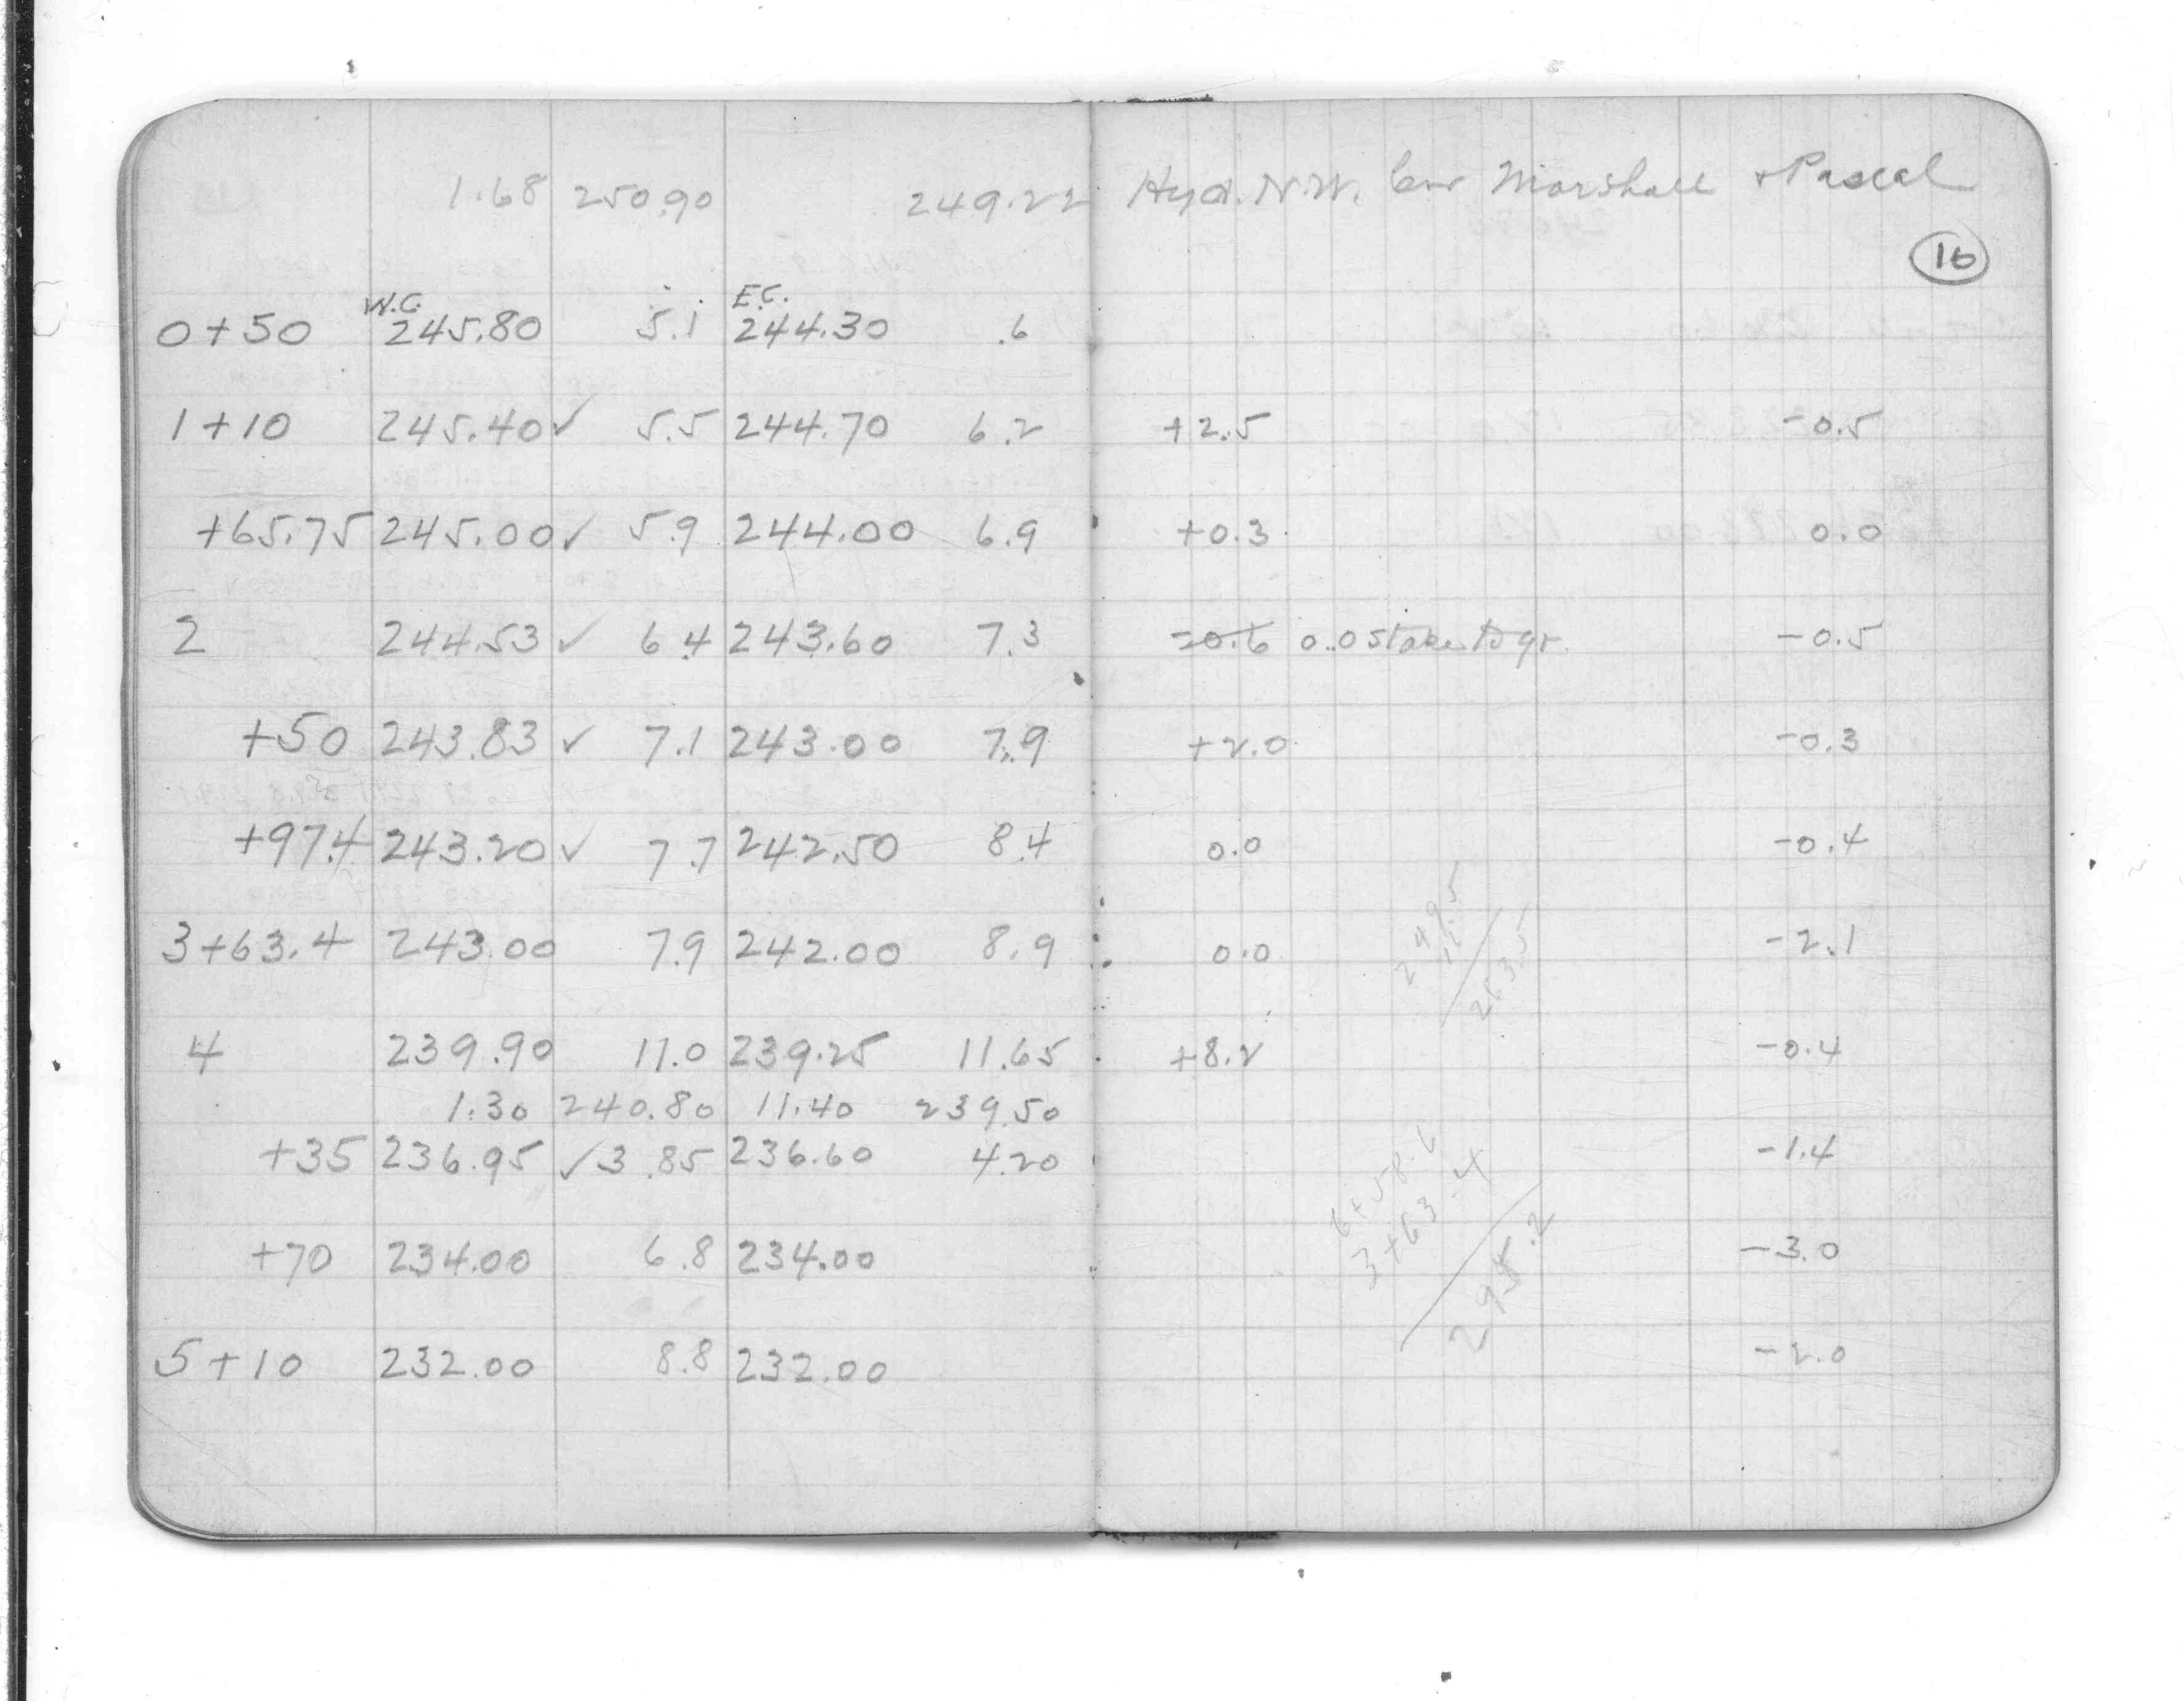 1.68 250.90 249.22 Hyd. N.W. Cor Marshall + Pascal
16
W.C. E.C.
0+50 245.80 5.1 244.30 .6
1+10 245.40✓ 5.5 244.70 6.2 +2.5 -0.5
+65.75 245.00✓ 5.9 244.00 6.9 +0.3 0.0
2 244.53✓ 6.4 243.60 7.3 -0.6 0.0 stake to gr. -0.5
+50 243.83✓ 7.1 243.00 7.9 +2.0 -0.3
+97.4 243.20✓ 7.7 242.50 8.4 0.0 -0.4
3+63.4 243.00 7.9 242.00 8.9 0.0 -2.1
263.5
4 239.90 11.0 239.25 11.65 +8.2 -0.4
1.30 240.80 11.40 239.50
+35 236.95 ✓3.85 236.60 4.20 -1.4
6+58.6
3+63.4
295.2
+70 234.00 6.8 234.00 -3.0
5+10 232.00 8.8 232.00 -2.0